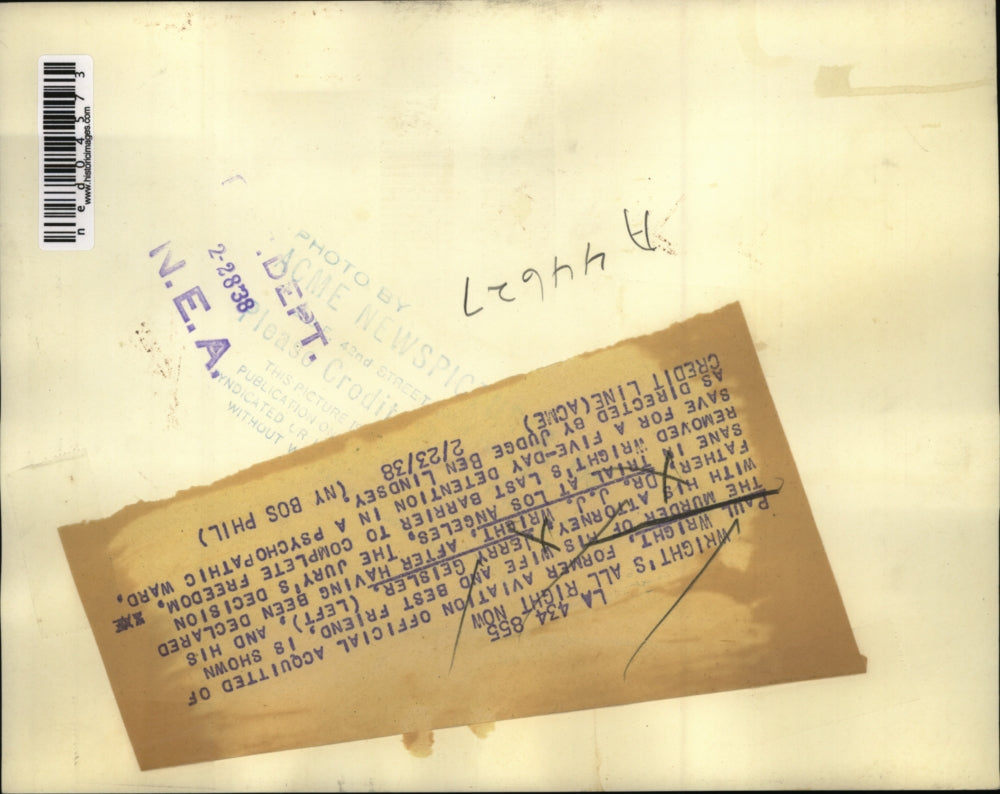 ned04573
www.historicimages.com
A 44627
N.E.A.
2-28'38
.DEPT.
PHOTO BY
ACME NEWSPIC
42nd STREET
Please Credit
THIS PICTURE IS
PUBLICATION ON
SYNDICATED, OR
WITHOUT
LA 434 855
WRIGHT'S ALL RIGHT NOW
PAUL WRIGHT, FORMER AVIATION OFFICIAL ACQUITTED OF
THE MURDER OF HIS WIFE AND BEST FRIEND, IS SHOWN
WITH HIS ATTORNEY JERRY GEISLER, (LEFT), AND HIS
FATHER, DR. J.J. WRIGHT, AFTER HAVING BEEN DECLARED
SANE IN TRIAL AT LOS ANGELES, THE JURY'S DECISION
REMOVED WRIGHT'S LAST BARRIER TO COMPLETE FREEDOM,
SAVE FOR A FIVE-DAY DETENTION IN A PSYCHOPATHIC WARD,
AS DIRECTED BY JUDGE BEN LINDSEY
CREDIT LINE (ACME) 2/23/38 (NY BOS PHIL)